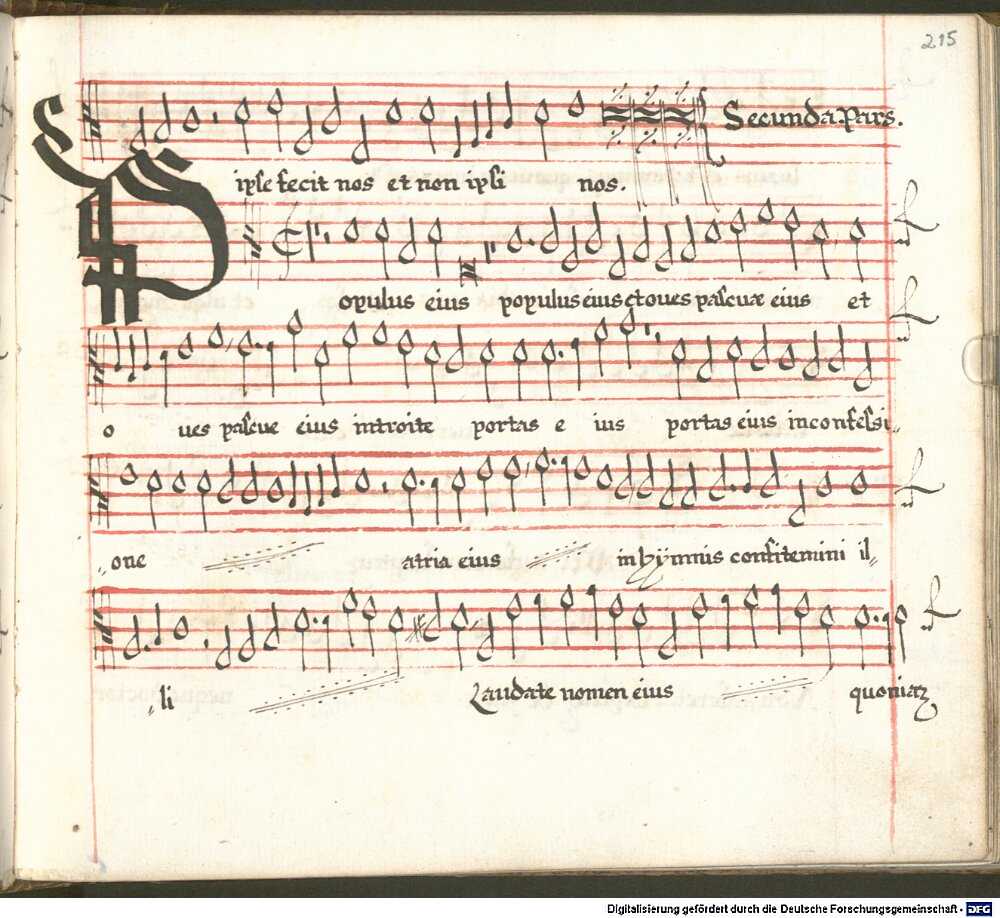 215
Secunda Pars.
ipse fecit nos et non ipsi nos.
Populus eius populus eius et oves pascuæ eius et
o ves pascue eius introite portas e ius portas eius in confessi„
„one atria eius in hÿmnis confitemini il„
„li Laudate nomen eius quoniaz
Digitalisierung gefördert durch die Deutsche Forschungsgemeinschaft - DFG